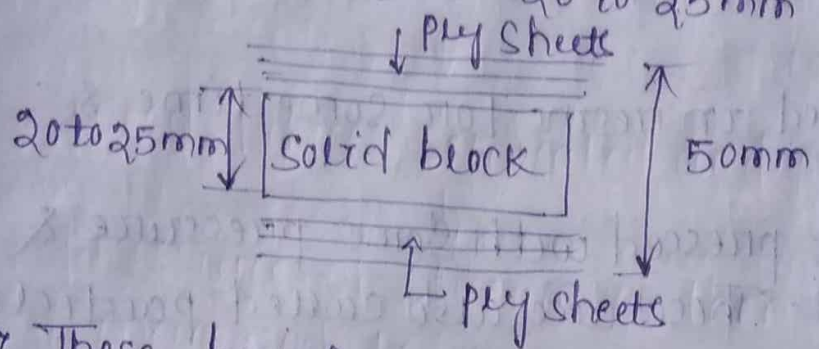 20 to 25mm
Ply sheets
20to25mm
Solid block
50mm
Ply sheets
These